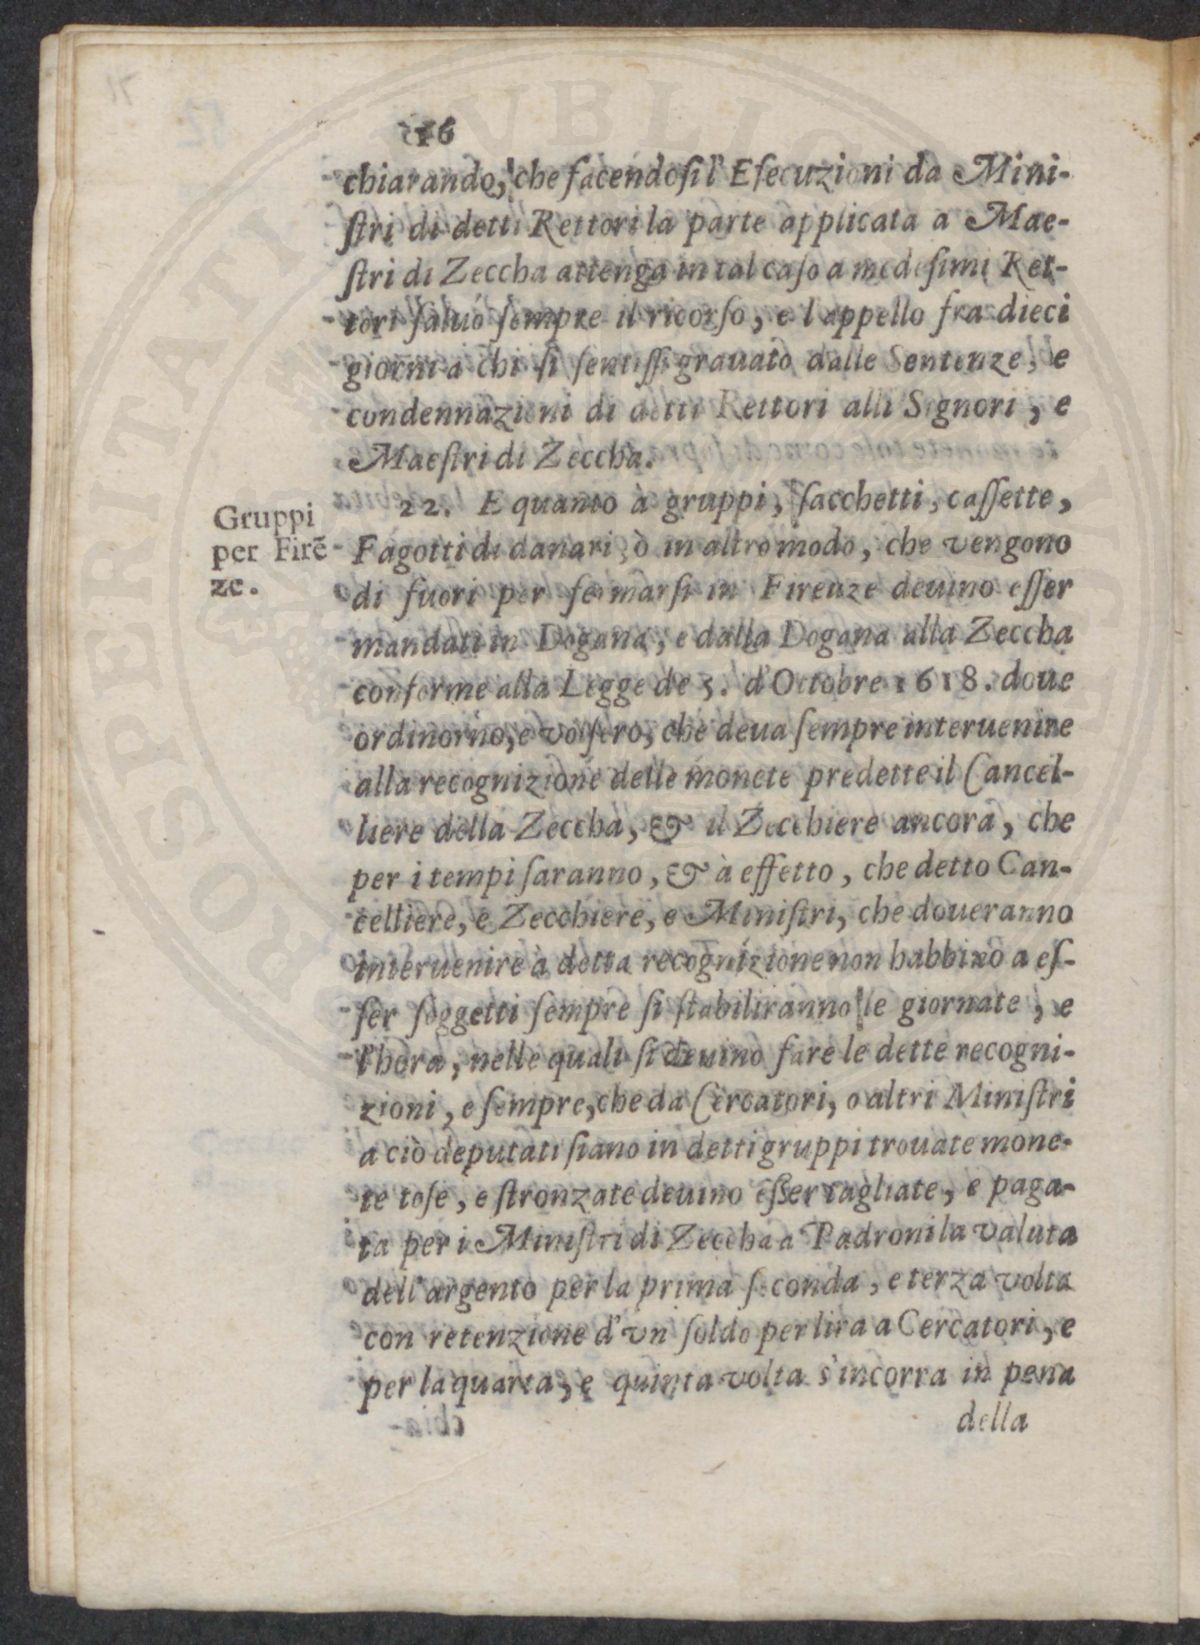 16
chiarando, che facendosi l' Esecuzioni da Mini-
stri di detti Rettori la parte applicata a Mae-
stri di Zeccha attenga in tal caso a medesimi Ret-
tori saluo sempre il ricorso, e l appello fra dieci
giorni a chi si sentissi grauato dalle Sentenze, e
condennazioni di detti Rettori alli Signori, e
Maestri di Zeccha.
22. E quanto à gruppi, sacchetti, cassette,
Gruppi
per Firē
ze.
Fagotti di danari, ò in altro modo, che vengono
di fuori per fermarsi in Firenze deuino esser
mandati in Dogana, e dalla Dogana alla Zeccha
conforme alla Legge de 5. d'Ottobre 1618. doue
ordinorno, e volsero, che deua sempre interuenire
alla recognizione delle monete predette il Cancel-
liere della Zeccha, & il Zecchiere ancora, che
per i tempi saranno, & à effetto, che detto Can-
celliere, e Zecchiere, e Ministri, che doueranno
interuenire à detta recognizione non habbino a es-
ser soggetti sempre si stabiliranno le giornate, e
l'hora, nelle quali si deuino fare le dette recogni-
zioni, e sempre, che da Cercatori, o altri Ministri
a ciò deputati siano in detti gruppi trouate mone-
te tose, e stronzate deuino esser tagliate, e paga-
ta per i Ministri di Zeccha a Padroni la valuta
dell'argento per la prima seconda, e terza volta
con retenzione d'vn soldo per lira a Cercatori, e
per la quarta, e quinta volta s'incorra in pena
della